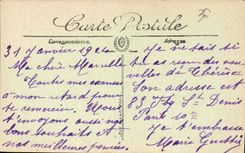 Carte Postale
Correspondance
Adresse
31 Janvier 1920
Ma chère Marcelle
Toutes mes excuses
à mon retard pour te
remercier. Nous
t'envoyons aussi nos
bons souhaits et
nos meilleures pensées
Je ne sais si
tu as reçu des nou
velles de Thérèse
Son adresse est
83, Fbg St Denis
Paris 10e
Je t'embrasse
Marie